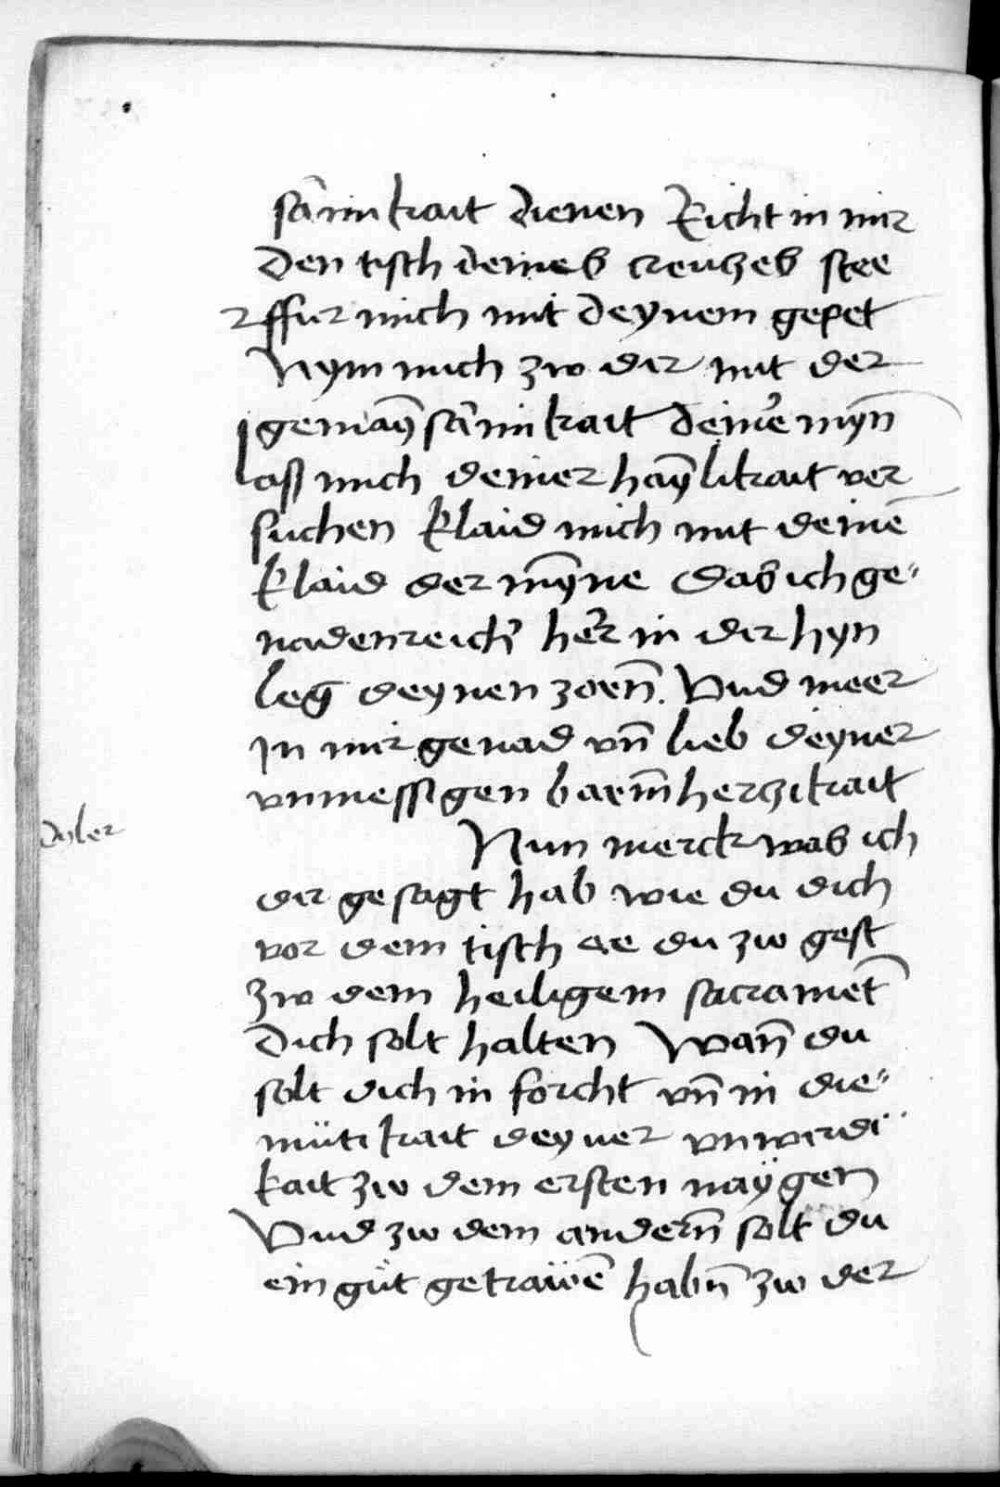 sāmikait dienen Richt in mir
den tisch deines creuczes stee
ffur mich mit deynem gepet
Nym mich zw dir mit der
gemaȳsāmikait deinͤ myn̄
laß mich deiner haȳlikait ver
suchen klaid mich mit deinē
klaid der mȳne das ich ge⸗
nadenreichͬ her in dir hyn
leg deynen zoren̄. Vnd meer
jn mir genad vn̄ lieb deyner
vnmessigen barm̄herczikait
Nun merck was ich
dir gesagt hab wie du dich
vor dem tisch ee du zw gest
zw dem heiligem sacramēt
Dich solt halten Wan̄ du
solt dich in forcht vn̄ in die⸗
mütikait deyner vnwirdi⸗
kait zw dem ersten naÿgen
Vnd zw dem andern̄ solt du
ein güt getrawē habn̄ zw der